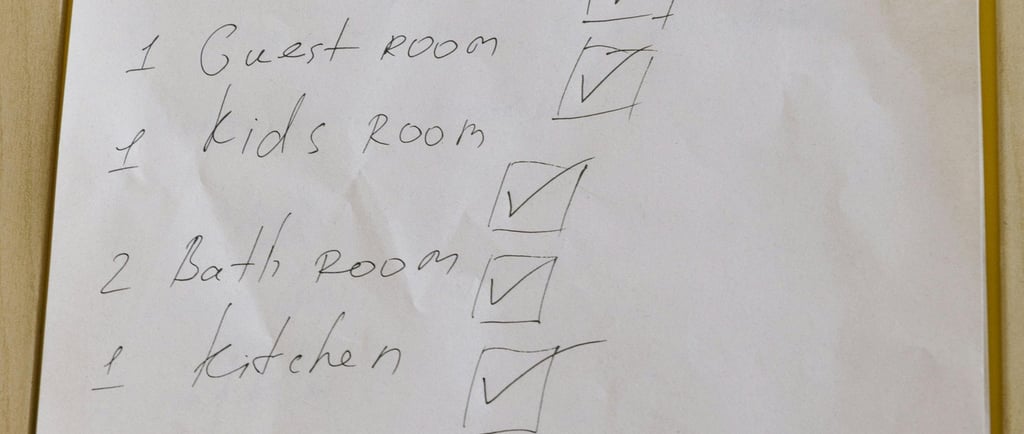 1 Guest ROOM
1 Kids ROOM
2 Bath ROOM
1 Kitchen